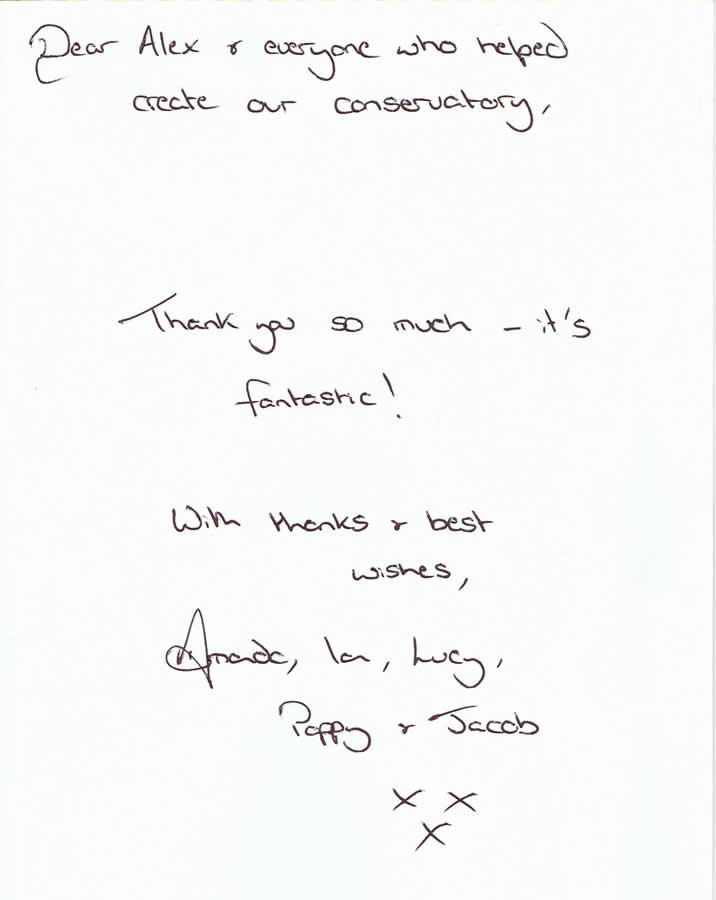 Dear Alex & everyone who helped
create our conservatory,
Thank you so much – it's
fantastic!
With thanks & best
wishes,
Amanda, Ian, Lucy,
Poppy & Jacob
x x
x